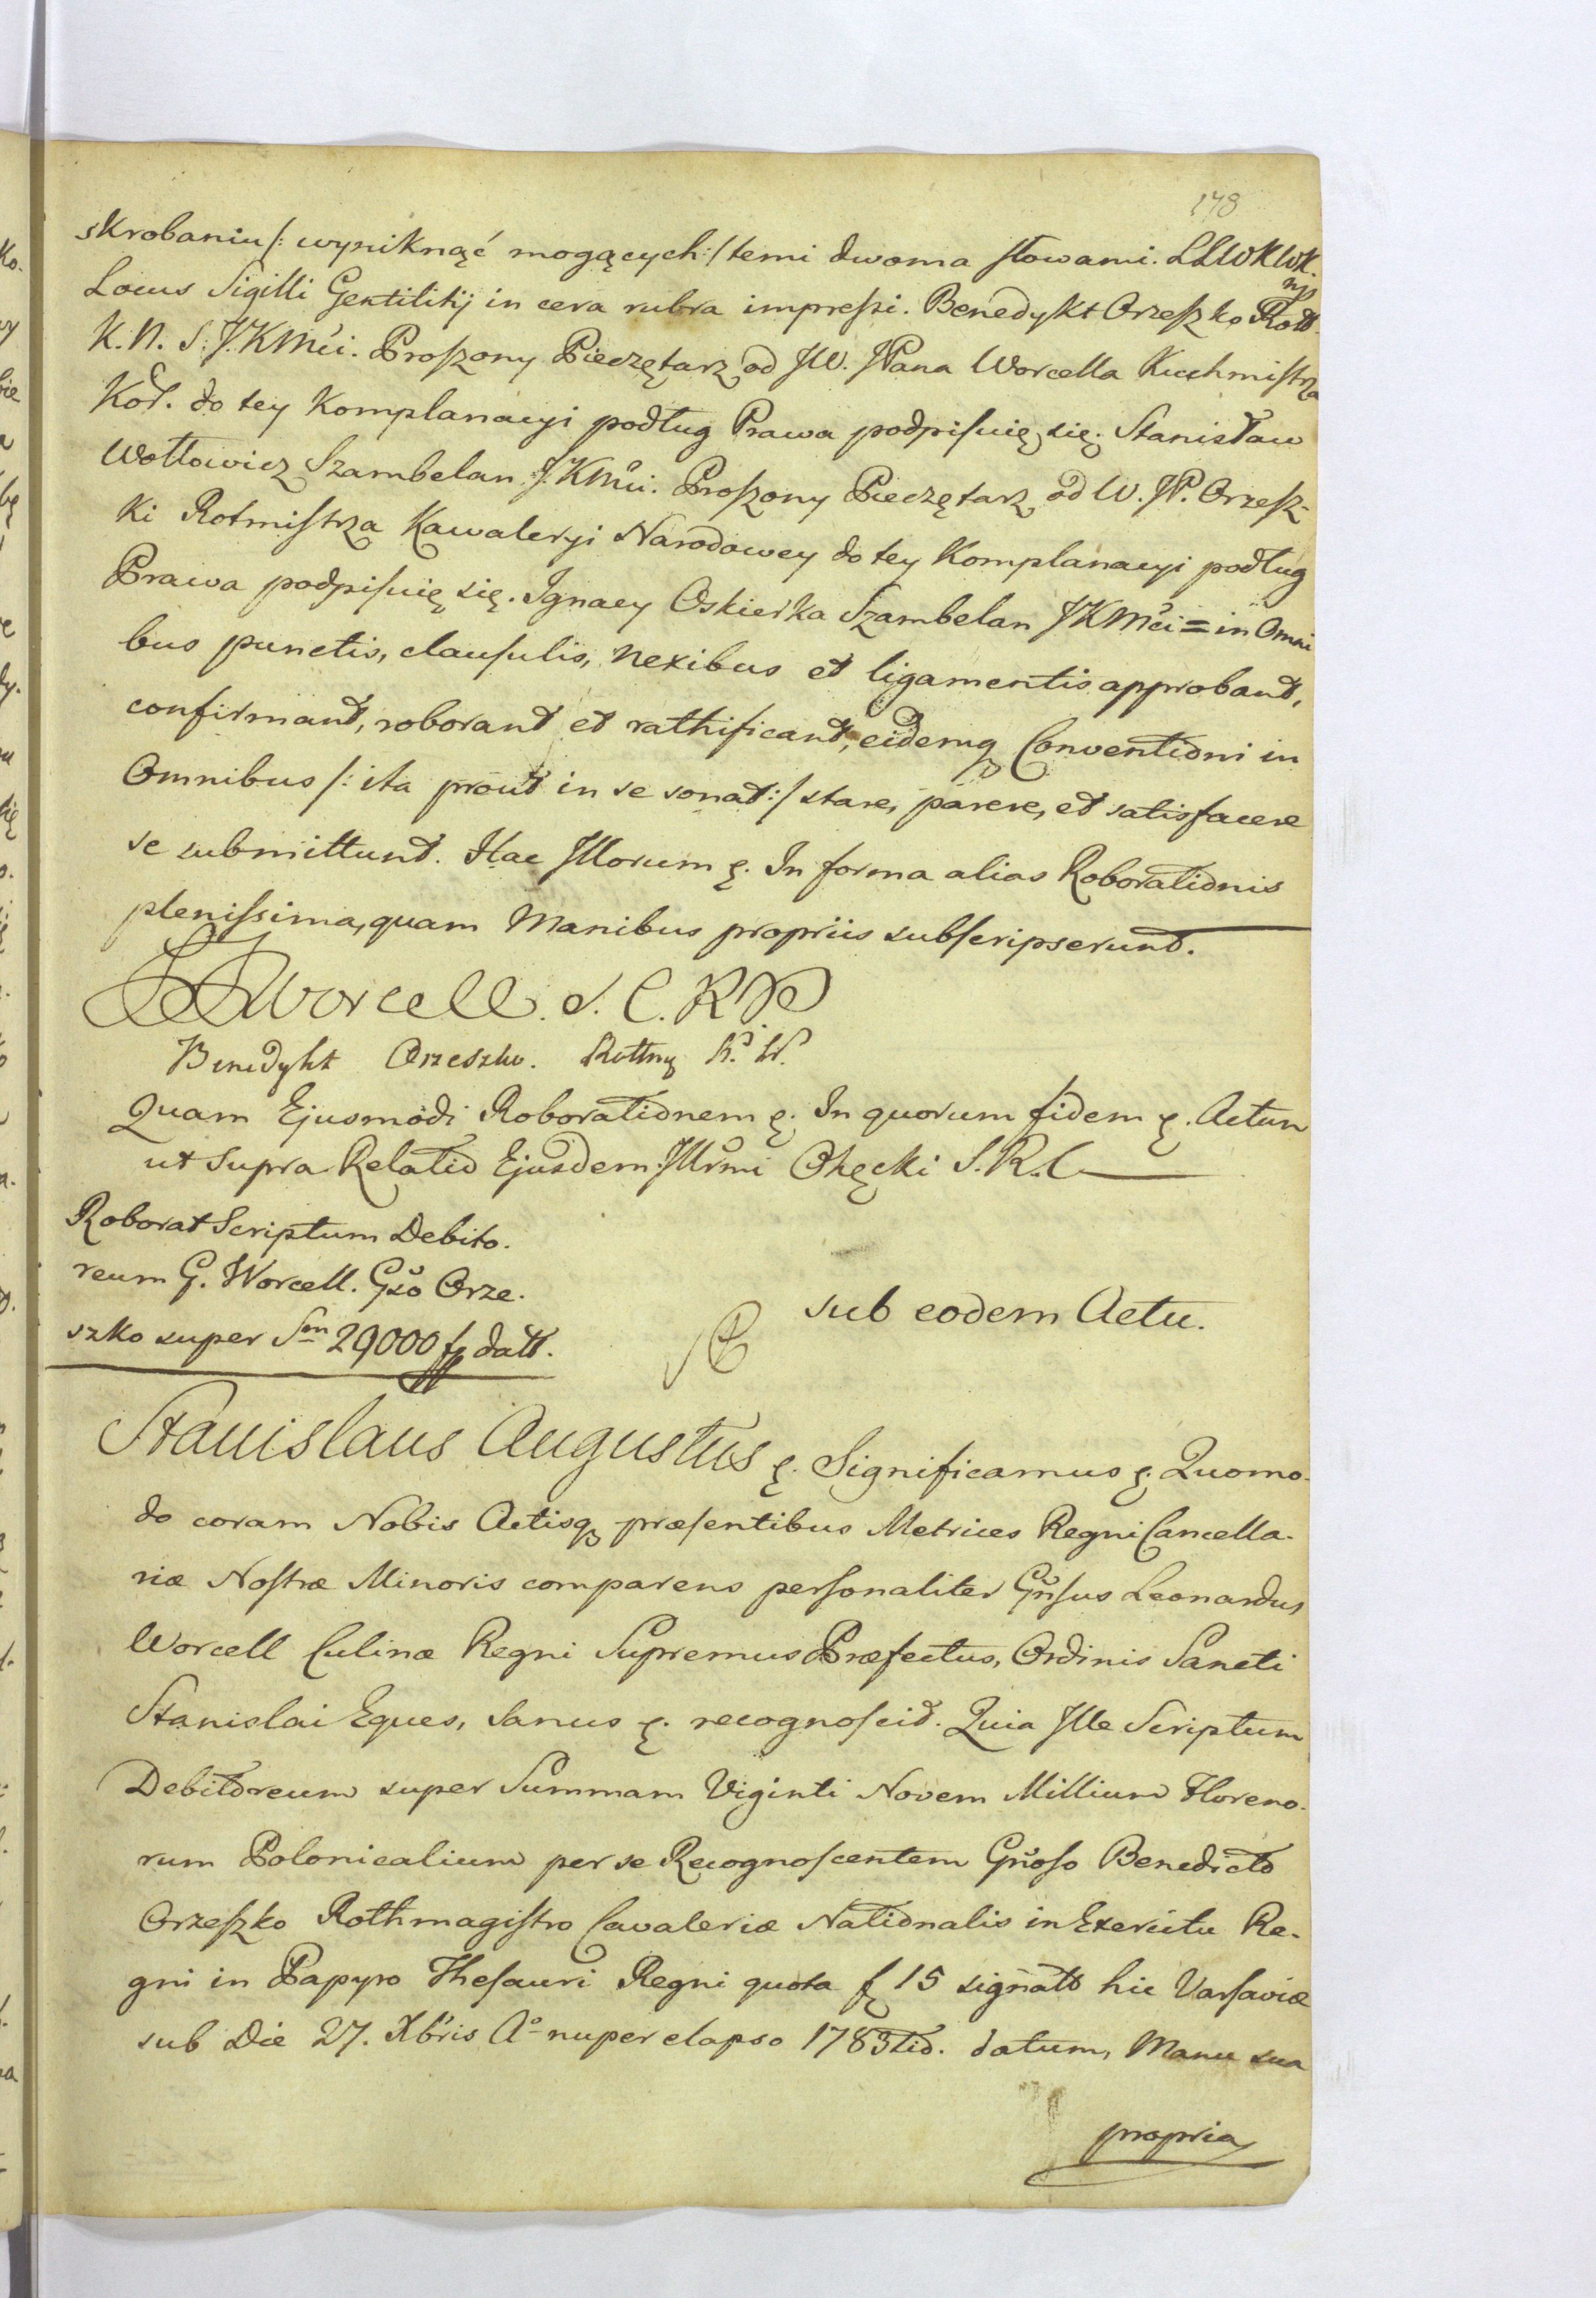 178
skrobaniu /: wyniknąć mogących :/ temi dwoma słowami. LLWKWK.
Locus Sigilli Gentilitij in cera rubra impressi. Benedykt Orzeszko Rott
mp
K. N. S. J. KMći. Proszony Pieczętarz od JW. JPana Worcella Kuchmistrza
Kor. do tey Komplanacyi podług Prawa podpisuię się. Stanisław
Wołłowicz Szambelan J. KMći. Proszony Pieczętarz od W. JP. Orzesz-
ki Rotmistrza Kawaleryi Narodowey do tey Komplanacyi podług
Prawa podpisuię się. Ignacy Oskierka Szambelan JKMći = in Omni
bus punctis, clausulis, nexibus et ligamentis approbant,
confirmant, roborant et rathificant, eidemq Conventioni in
Omnibus /: ita prout in se sonat :/ stare, parere, et satisfacere
se submittunt. Hac Illorum &. In forma alias Roborationis
plenissima, quam Manibus propriis subscripserunt.
Worcell. S. C. R. P
Benedykt Orzeszko. Rottny K. N.
Quam Ejusmodi Roborationem &. In quorum fidem &. Actum
ut supra Relatio Ejusdem Illrmi Chęcki S. R. C
Roborat Scriptum Debito.
reum G. Worcell. Gso Orze.
szko super Sm 29000 f datt.
sub eodem Actu.
Stanislaus Augustus &. Significamus &. Quomo-
do coram Nobis Actisq præsentibus Metrices Regni Cancella-
riæ Nostræ Minoris comparens personaliter Gnsus Leonardus
Worcell Culinæ Regni Supremus Præfectus, Ordinis Sancti
Stanislai Eques, Sanus &. recognoscit. Quia Ille Scriptum
Debitoreum super Summam Viginti Novem Millium Floreno-
rum Polonicalium per se Recognoscentem Gnoso Benedicto
Orzeszko Rothmagistro Cavaleriæ Nationalis in Exercitu Re-
gni in Papyro Thesauri Regni quota f 15 signato hic Varsaviæ
sub Die 27. Xbris Ao nuper elapso 1783tio. datum, Manu sua
propria